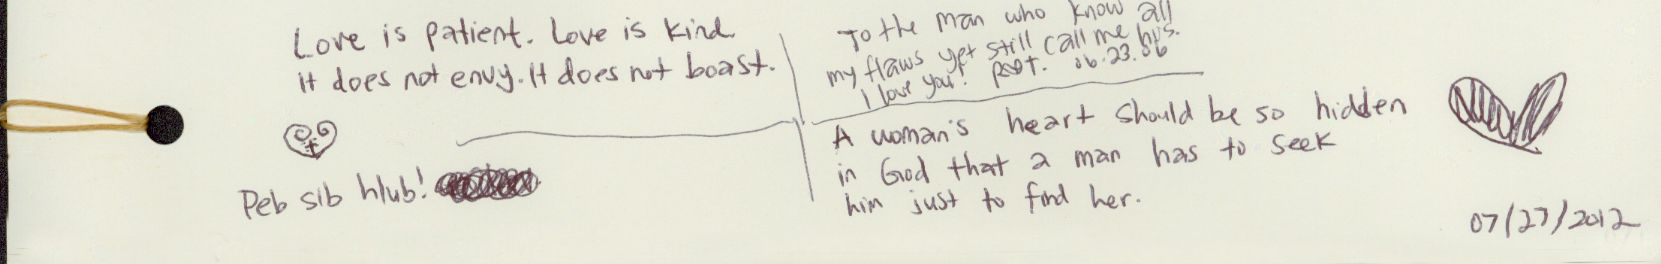 Love is patient. Love is kind.
It does not envy. It does not boast.
Peb sib hlub!
To the man who know all
my flaws yet still call me his.
I love you! 06.23.06
A woman's heart should be so hidden
in God that a man has to seek
him just to find her.
07/27/2012